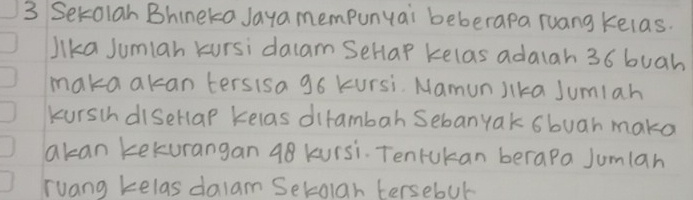 3 Sekolah Bhineka Jaya mempunyai beberapa ruang kelas.
Jika Jumlah kursi dalam Setiap kelas adalah 36 buah
maka akan tersisa 96 kursi. Namun Jika Jumlah
kursih disetiap kelas ditambah Sebanyak 6 buah maka
akan kekurangan 48 kursi. Tentukan berapa Jumlah
ruang kelas dalam Sekolah tersebut